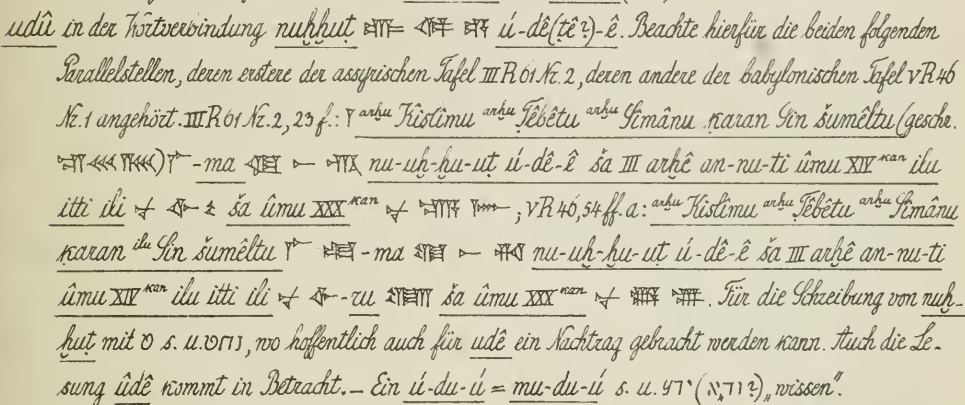 udû in der Wortverbindung nuḫḫuṭ ú-dê(tê?)-ê. Beachte hierfür die beiden folgenden
Parallelstellen, deren erstere der assyrischen Tafel III R 61 Nr. 2, deren andere der babylonischen Tafel V R 46
Nr. 1 angehört. III R 61 Nr. 2, 23 f.: arḫu Kislimu arḫu Ṭêbêtu arḫu Simânu ḳaran Sin šumêltu (geschr.
-ma nu-uḫ-ḫu-uṭ ú-dê-ê ša III arḫê an-nu-ti ûmu XIV kan ilu
itti ili ša ûmu XXX kan , V R 46, 54 ff. a: arḫu Kislimu arḫu Ṭêbêtu arḫu Simânu
ḳaran ilu Sin šumêltu -ma nu-uḫ-ḫu-uṭ ú-dê-ê ša III arḫê an-nu-ti
ûmu XIV kan ilu itti ili -zu ša ûmu XXX kan . Für die Schreibung von nuḫ-
ḫuṭ mit ט s. u. נחט, wo hoffentlich auch für udê ein Nachtrag gebracht werden kann. Auch die Le-
sung ûdê kommt in Betracht. — Ein ú-du-ú = mu-du-ú s. u. „wissen".